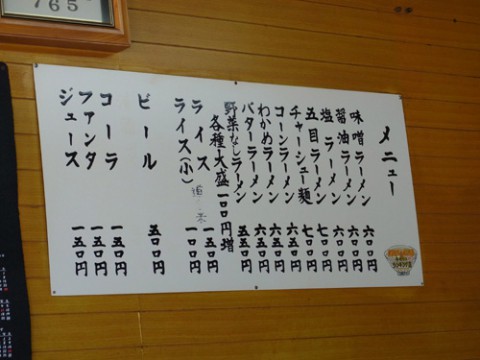 メニュー
味噌ラーメン 六〇〇円
醤油ラーメン 六〇〇円
塩ラーメン 六〇〇円
五目ラーメン 七〇〇円
チャーシュー麺 七〇〇円
コーンラーメン 六五〇円
わかめラーメン 六五〇円
バターラーメン 六五〇円
野菜なしラーメン 五五〇円
各種大盛一〇〇円増
ライス 一五〇円
ライス(小) 一〇〇円
ビール 五〇〇円
コーラ 一五〇円
ファンタ 一五〇円
ジュース 一五〇円
765